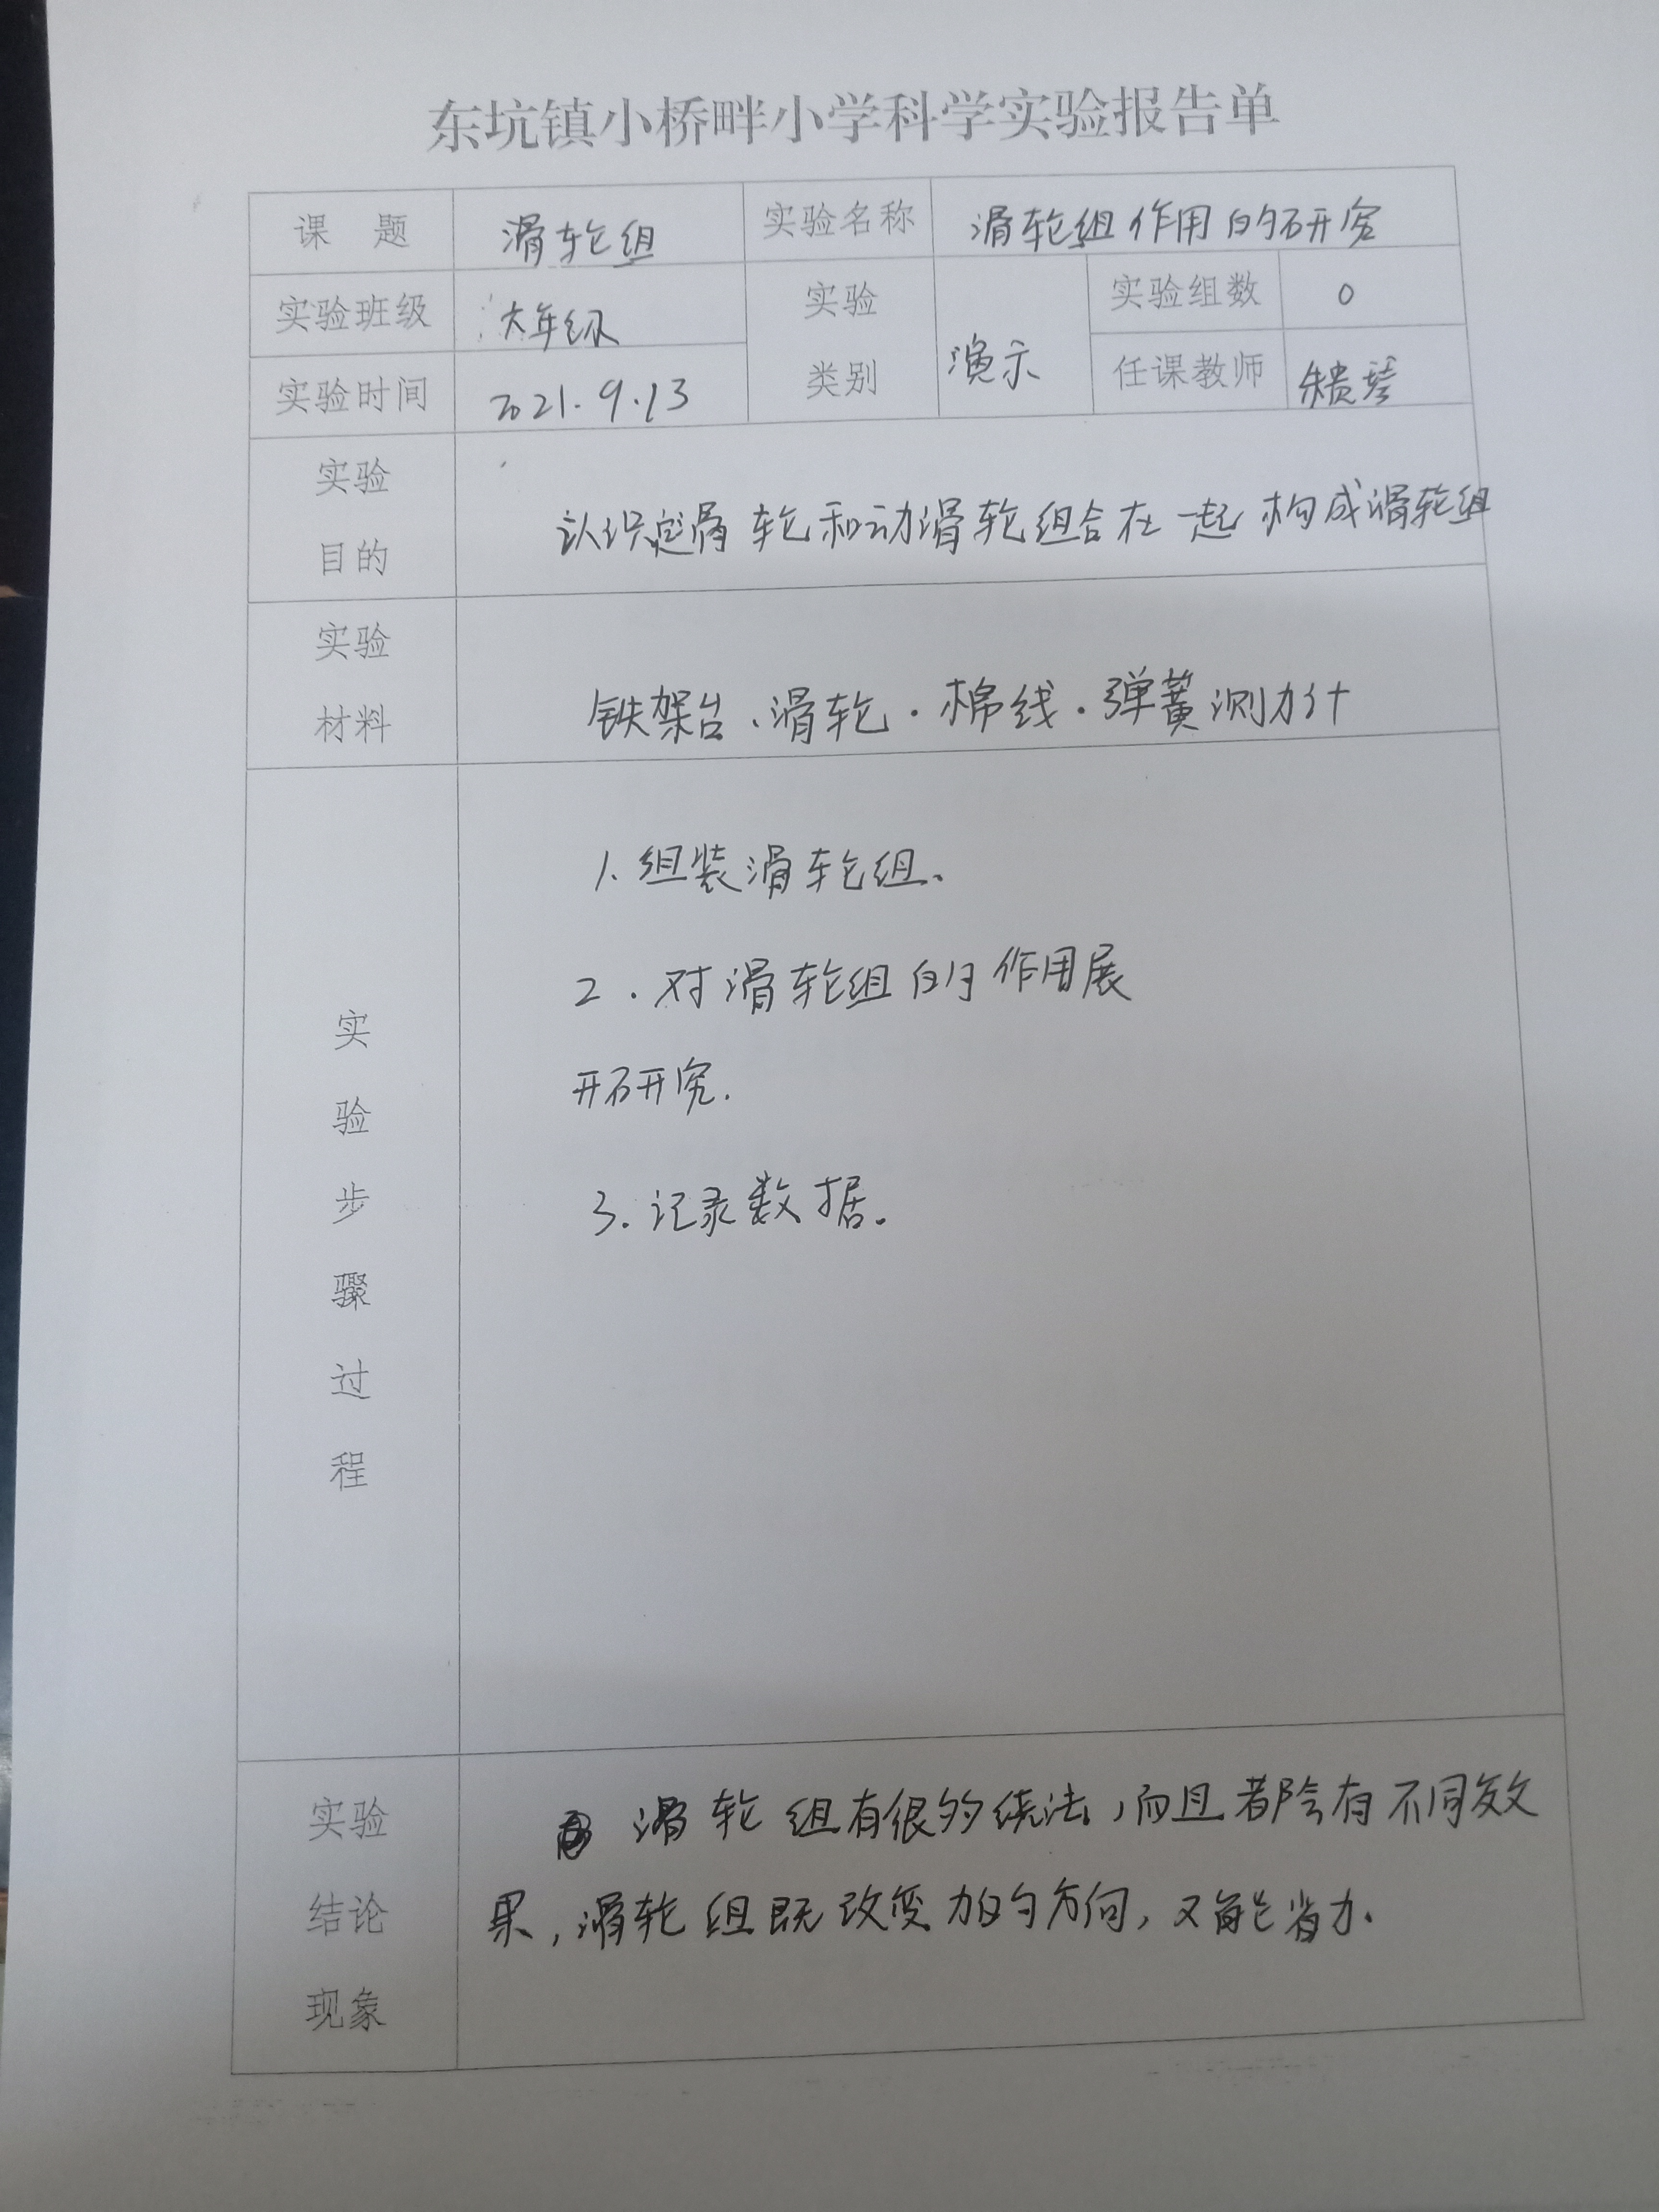 东坑镇小桥畔小学科学实验报告单
课 题 滑轮组 实验名称 滑轮组作用的研究
实验班级 六年级 实验类别 演示 实验组数 0
实验时间 2021.9.13 任课教师 朱贵琴
实验目的 认识定滑轮和动滑轮组合在一起构成滑轮组
实验材料 铁架台、滑轮.棉线.弹簧测力计
实验步骤过程
1.组装滑轮组.
2.对滑轮组的作用展
开研究.
3.记录数据。
实验结论现象
滑轮组有很多绕法,而且都会有不同效
果,滑轮组既改变力的方向,又能省力.